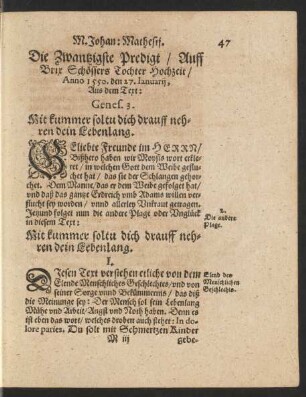 M. Johan: Mathesij.
47
Die Zwantzigste Predigt / Auff
Brix Schössers Tochter Hochzeit /
Anno 1550. den 27. Ianuarij,
Aus dem Text:
Genes. 3.
Mit kummer soltu dich drauff neh-
ren dein Lebenlang.
GEliebte Freunde im HERRN /
Bißhero haben wir Moysis wort erkle-
ret / in welchen Gott dem Weibe geflu-
chet hat / das sie der Schlangen gehor-
chet. Dem Manne / das er dem Weibe gefolget hat /
und daß das gantze Erdreich umb Adams willen ver-
flucht sey worden / unnd allerley Unkraut getragen.
Jetzund folget nun die andere Plage oder Unglück
in diesem Text:
2.
Die andere
Plage.
Mit kummer soltu dich drauff neh-
ren dein Lebenlang.
1.
DIesen Text verstehen etliche von dem
Elende Menschliches Geschlechtes / und von
seiner Sorge unnd Bekümmernis / das diß
die Meinunge sey: Der Mensch sol sein Lebenlang
Mühe und Arbeit / Angst und Noth haben. Denn es
ist eben das wort / welches droben auch stehet: In do-
lore paries. Du solt mit Schmertzen Kinder
Elend des
Menschlichen
Geschlechts.
M iij
gebe-